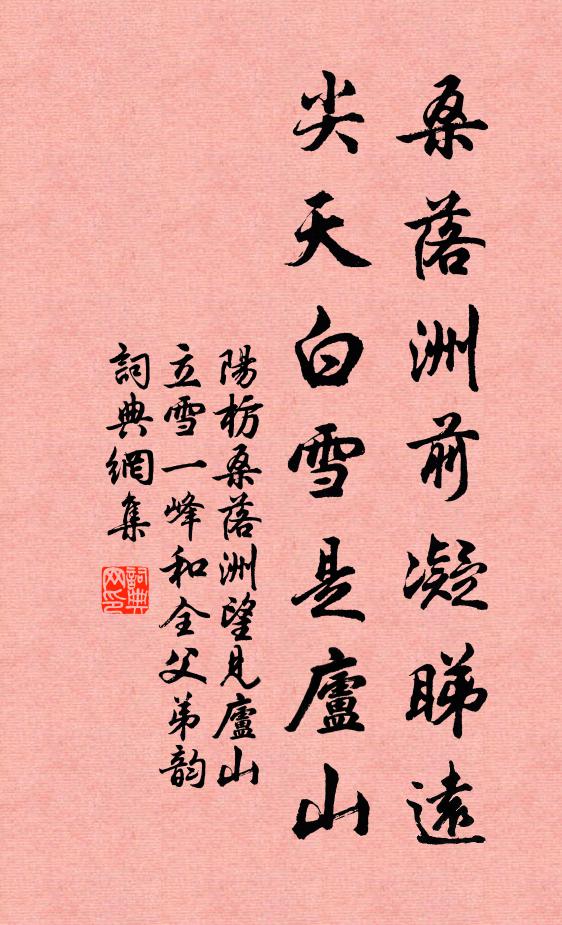 桑落洲前凝睇遠
尖天白雪是廬山
陽枋桑落洲望見廬山
立雪一峰和全父弟韵
詞典網集
詞典网印